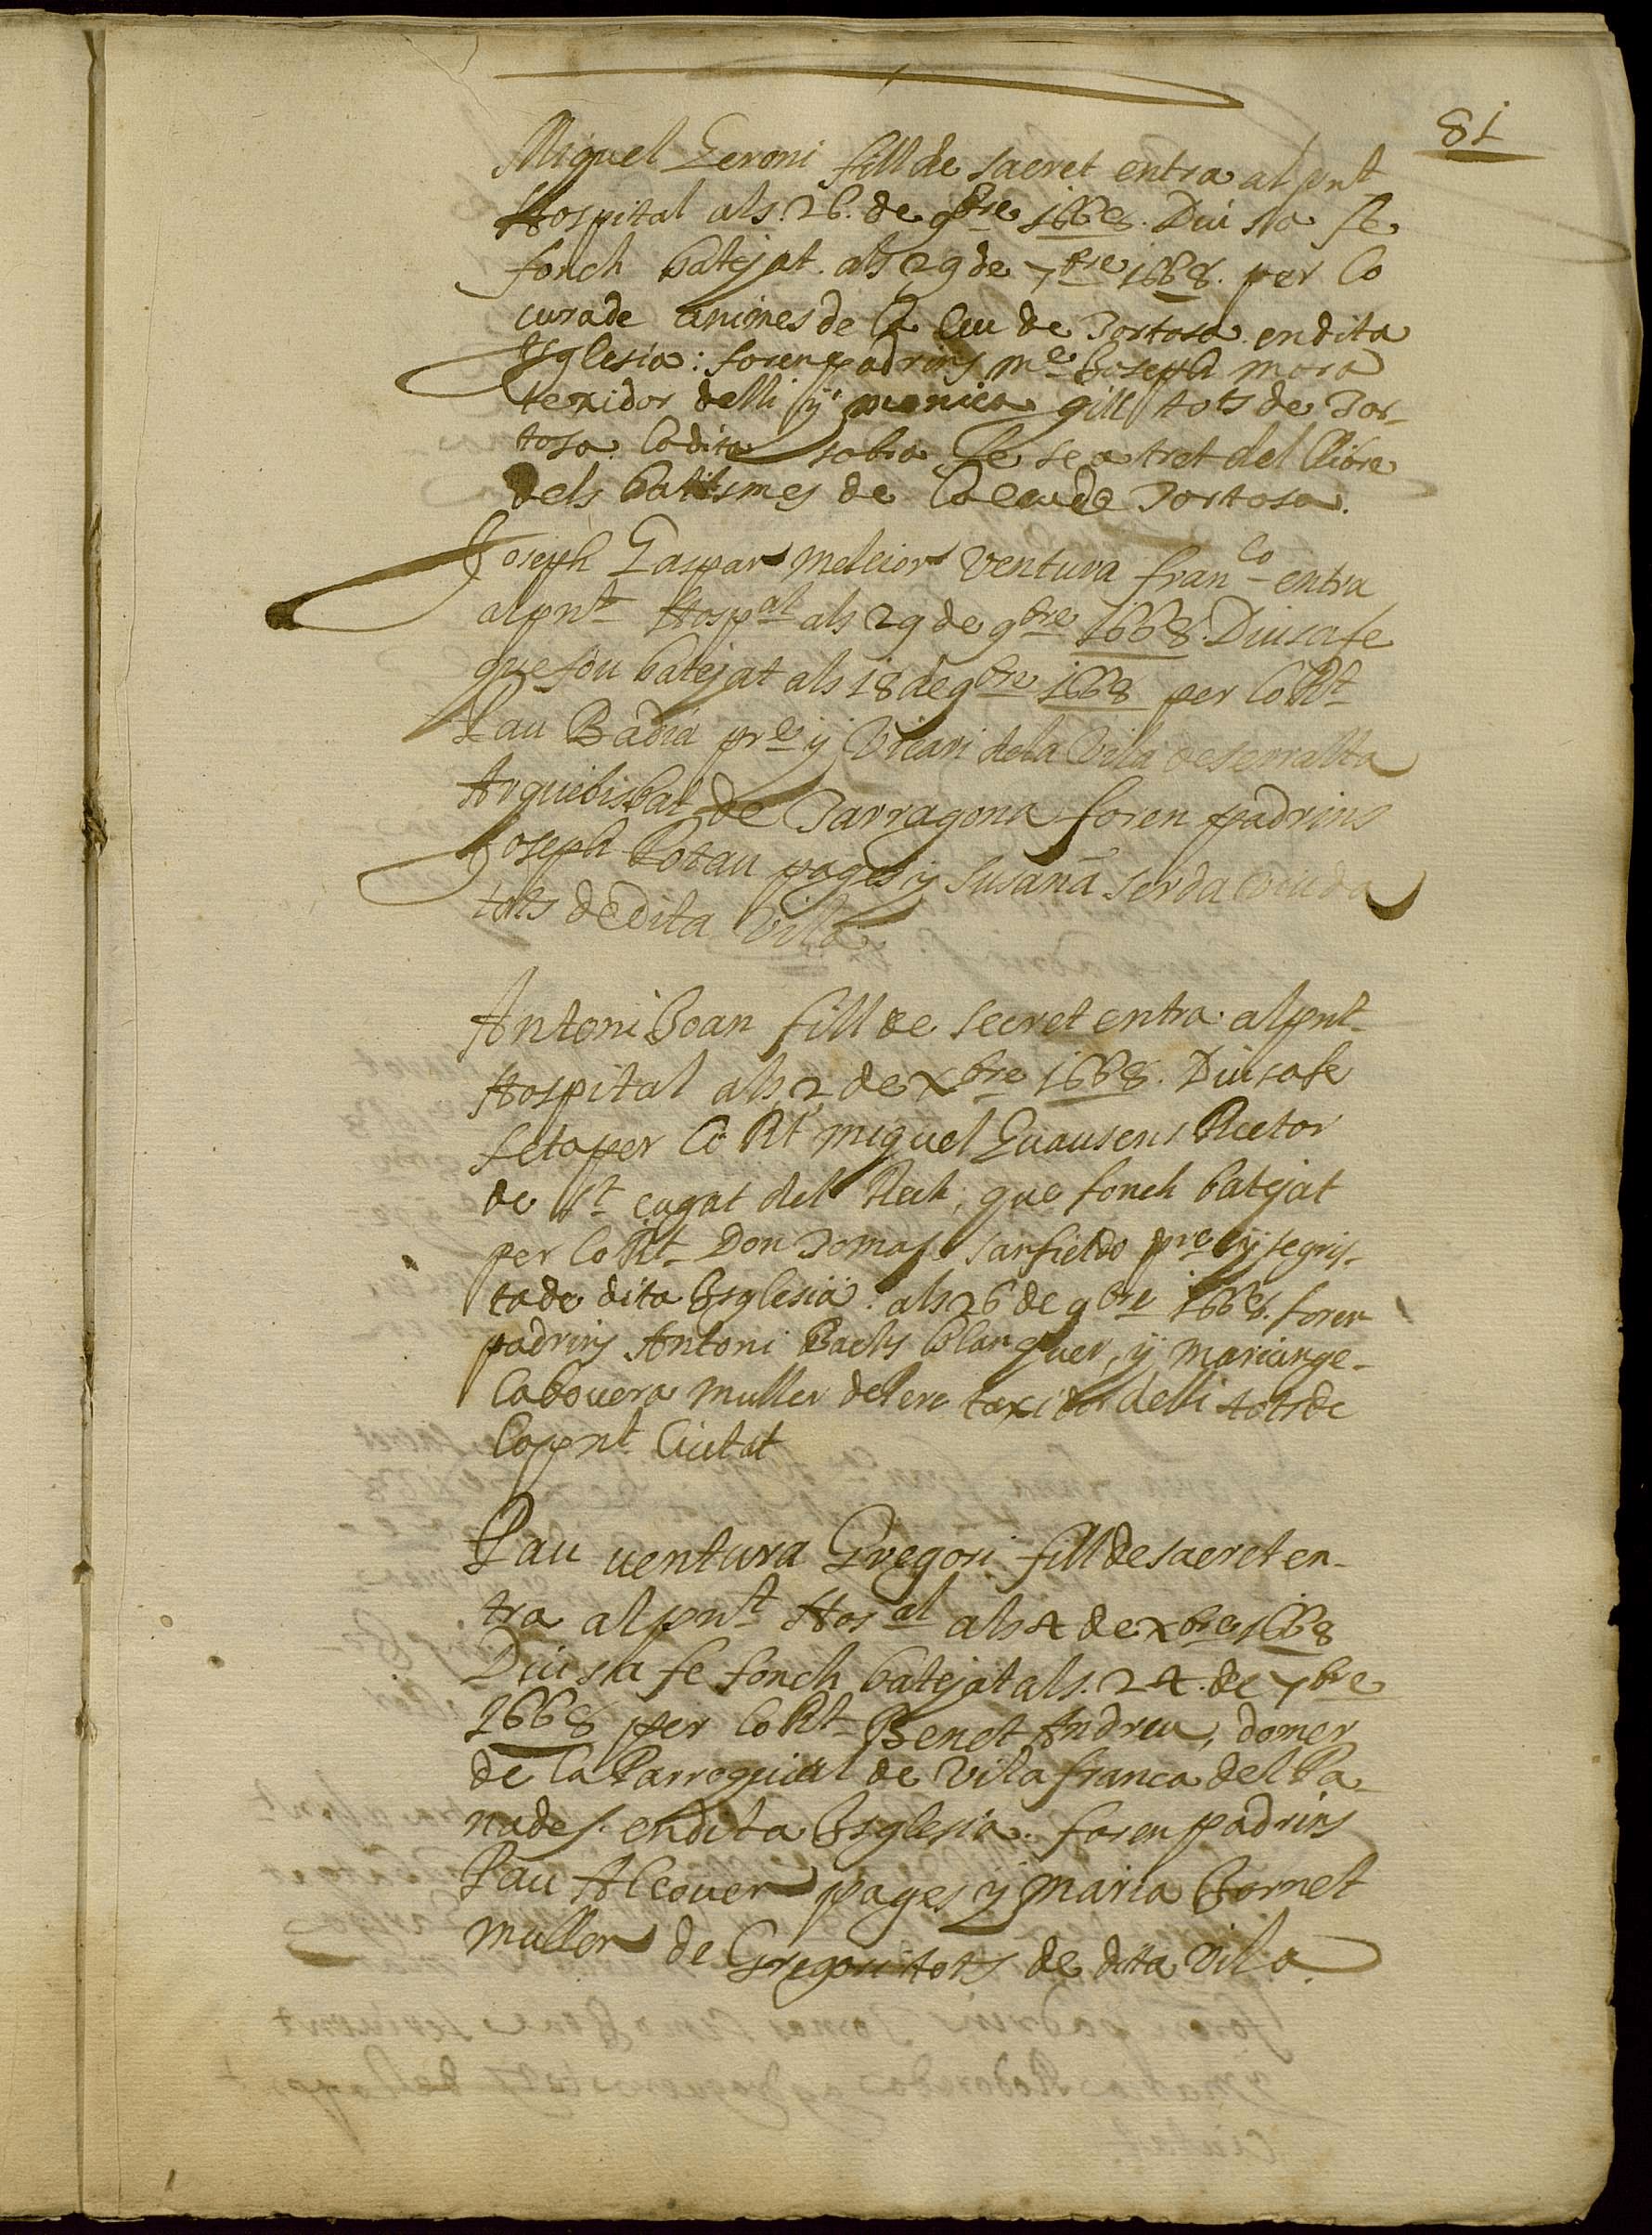 81
Miquel Geroni fill de sacret entra al pnt
Hospital als. 26. de 9bre 1668. Diu sa fe
fonch batejat. als 29 de 7bre 1668. per lo
curade animes de la seu de Tortosa. en dita
Isglesia: foren padrins me Joseph mora
texidor delli y monica gill tots de Tor-
tosa. la dita sobra fe se a tret del llibre
dels batismes de la seu de Tortosa.
Joseph Gaspar melcior Ventura franco entra
al pnt Hospal als 29 de 9bre 1668. Diu sa fe
que fou batejat als 18 de 9bre 1668 per lo Rt
Pau Badia pre y Vicari dela Vila de serralta
Arquebisbat de Tarragona foren padrins
Joseph Potau pages y Susana serda Viuda
tots de dita Vila.
Antoni Joan fill de secret entra al pnt
Hospital als 2 de Xbre 1668. Diu sa fe
feta per lo Rt miquel Rector
de St cugat del Rech, que fonch batejat
per lo Rt Don Tomas sarfieldo pre y segris-
ta de dita Isglesia. als 26 de 9bre 1668. foren
padrins Antoni Bachs blanquer, y mariange-
la bovera muller de texidor delli tots de
la pnt Ciutat
Pau ventura Gregori fill de sacret en-
tra al pnt Hosal als 4 de Xbre 1668
Diu sa fe fonch batejat als. 24. de 7bre
1668 per lo Rt Benet Andreu, domer
de la Parroquial de Vilafranca del Pa-
nades. en dita Isglesia. foren padrins
Pau Alcover pages y maria Jornet
muller de Gregori tots de dita Vila.